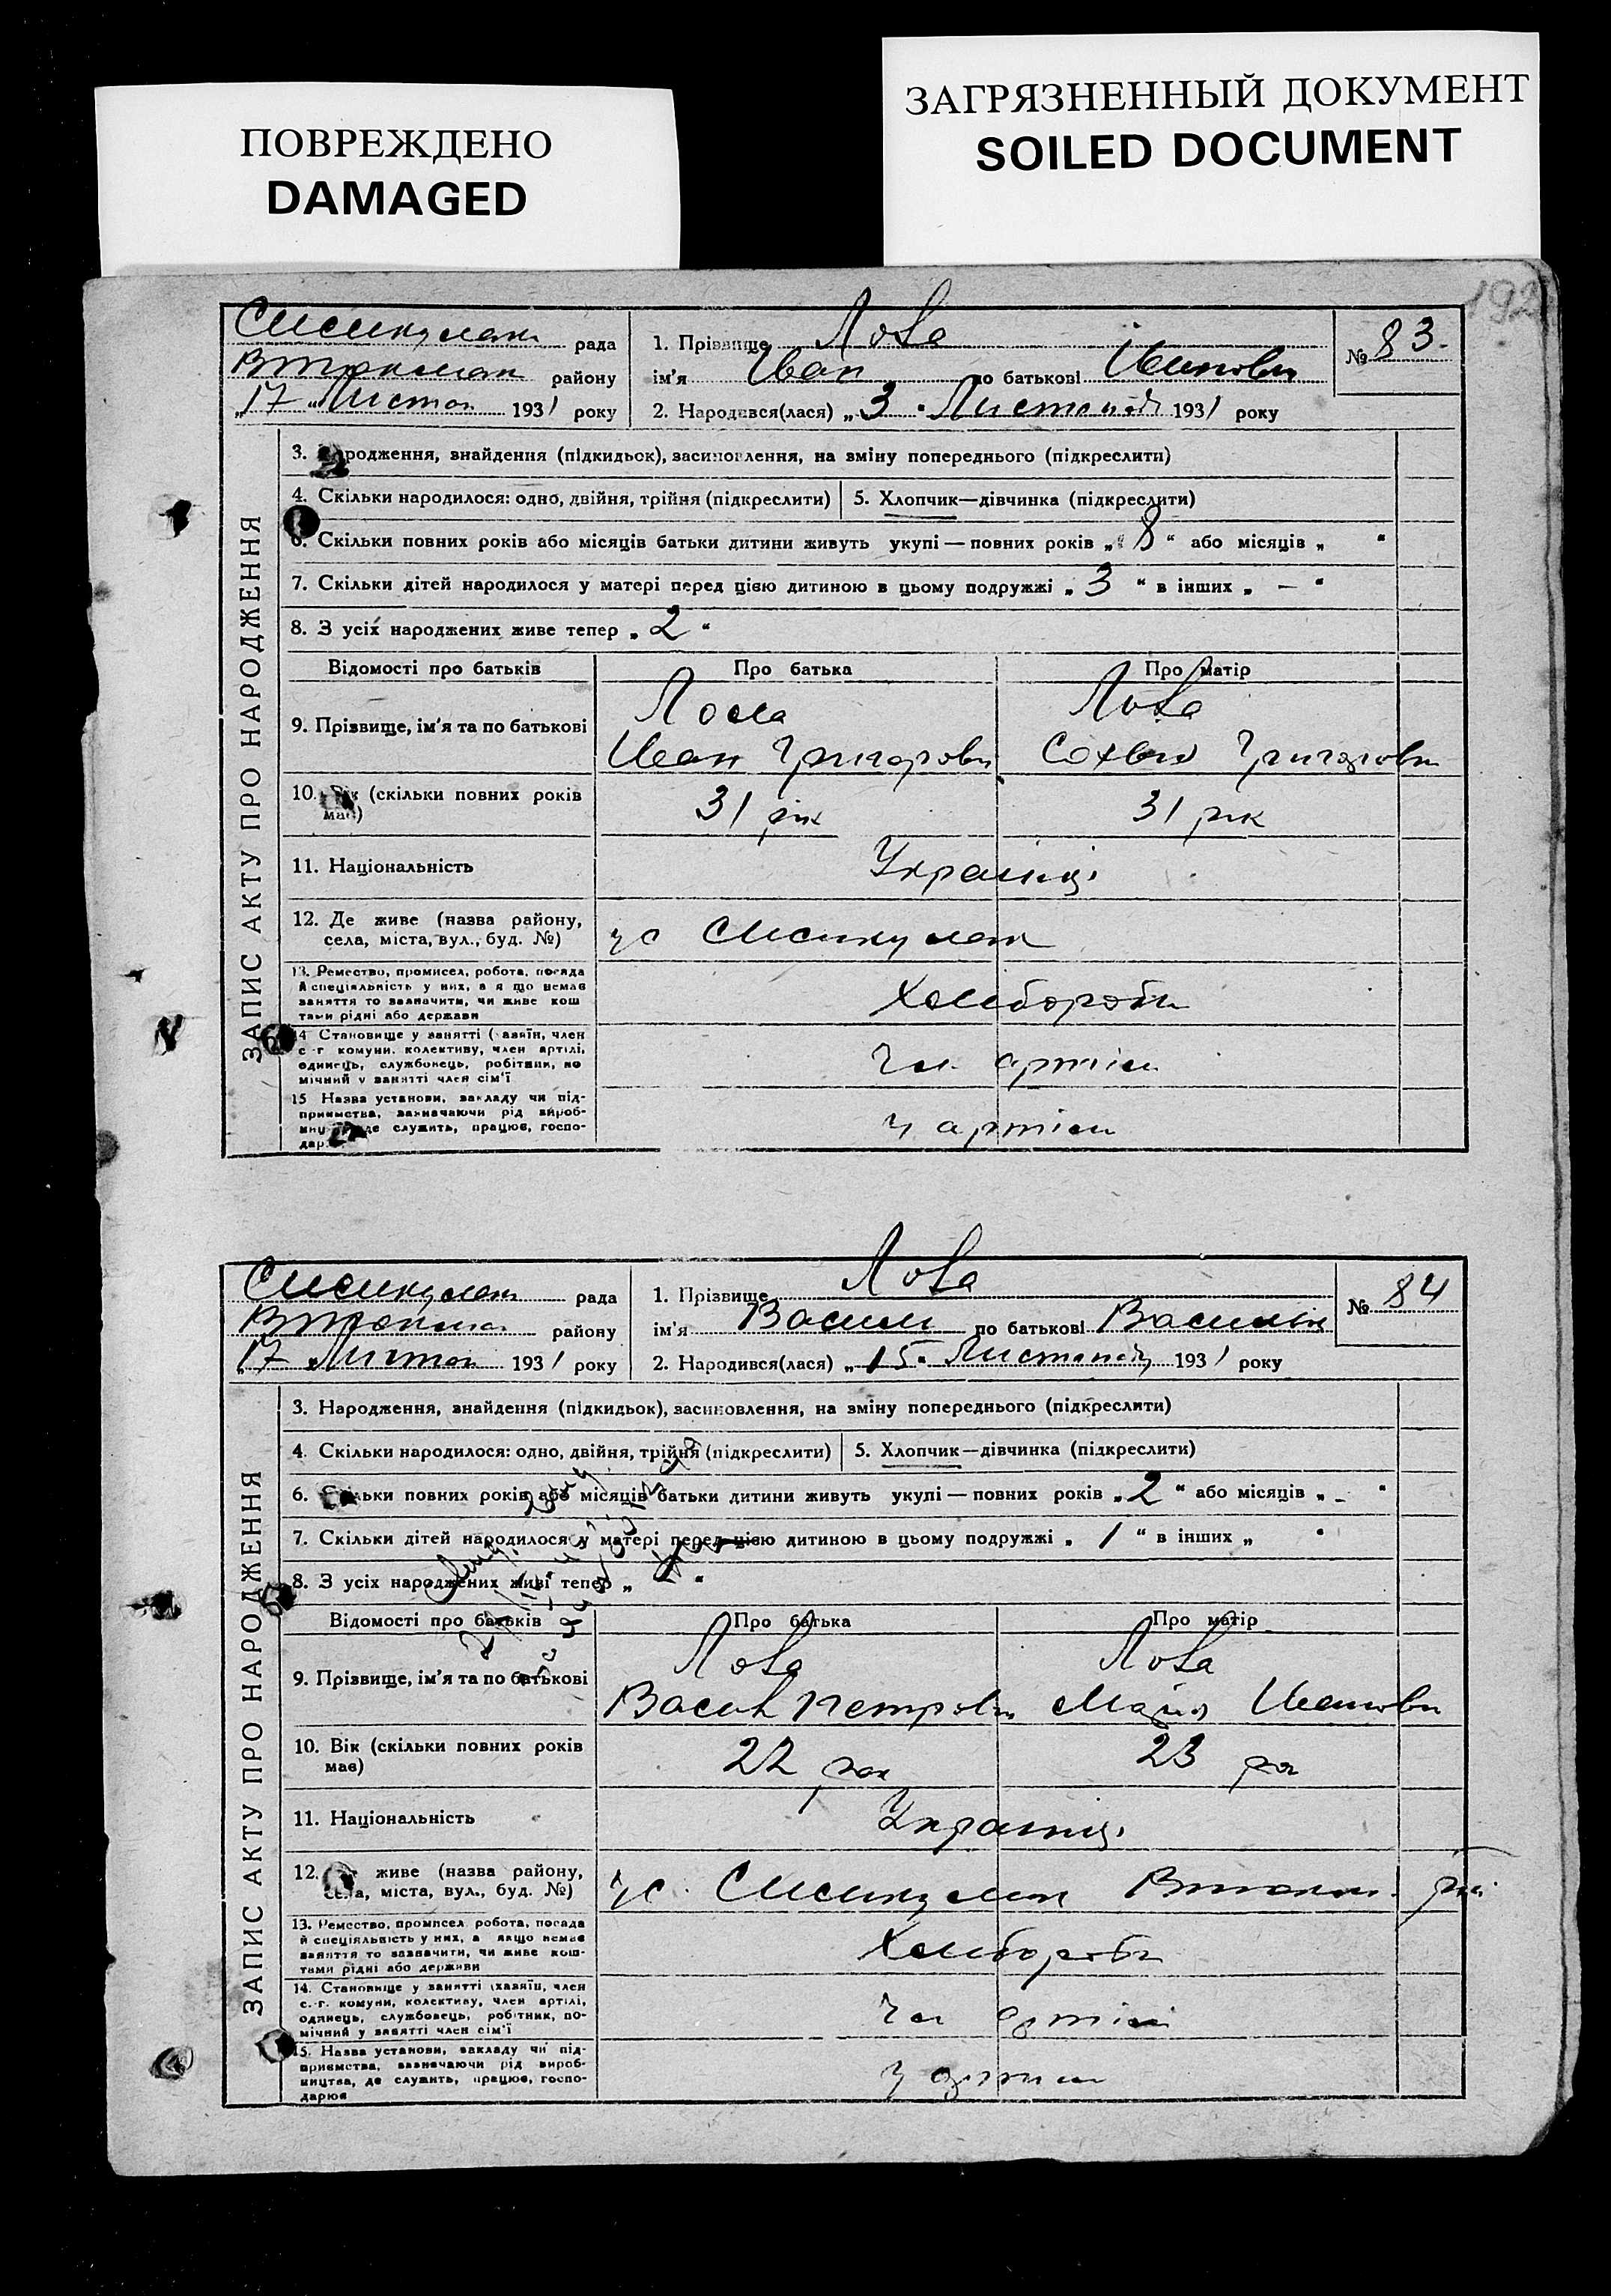 ПОВРЕЖДЕНО
DAMAGED
ЗАГРЯЗНЕННЫЙ ДОКУМЕНТ
SOILED DOCUMENT
192
рада
району
„17 „Листоп 1931 року
1. Прізвище
ім'я Іван по батькові Іванович
2. Народився(лася) „3 „Листопада 1931 року
№ 83.
ЗАПИС АКТУ ПРО НАРОДЖЕННЯ
3. Народження, знайдення (підкидьок), засиновлення, на зміну попереднього (підкреслити)
4. Скільки народилося: одно, двійня, трійня (підкреслити)
5. Хлопчик—дівчинка (підкреслити)
6. Скільки повних років або місяців батьки дитини живуть укупі — повних років „ 8 “ або місяців „ “
7. Скільки дітей народилося у матері перед цією дитиною в цьому подружжі „ 3 “ в інших „ — “
8. З усіх народжених живе тепер „ 2 “
Відомості про батьків
Про батька
Про матір
9. Прізвище, ім'я та по батькові
Іван Григорович
Григоровн
10. Вік (скільки повних років
має)
31 рік
31 рік
11. Національність
Українці
12. Де живе (назва району,
села, міста, вул., буд. №)
у с
13. Ремество, промисел, робота, посада
й спеціяльність у них, а я що немає
заняття то зазначити, чи живе кош
тами рідні або держави
Хлібороби
14 Становище у занятті (хазяїн, член
с-г комуни, колективу, член артілі,
одинець, службовець, робітник, по
мічний у занятті член сім'ї
Чл. артіли
15 Назва установи, закладу чи під-
приємства, зазначаючи рід вироб-
ництва, де служить, працює, госпо-
дарює
у артіли
рада
району
„17 „Листоп 1931 року
1. Прізвище
ім'я Василь по батькові Василів
2. Народився(лася) „15„ Листопада 1931 року
№ 84
ЗАПИС АКТУ ПРО НАРОДЖЕННЯ
3. Народження, знайдення (підкидьок), засиновлення, на зміну попереднього (підкреслити)
4. Скільки народилося: одно, двійня, трійня (підкреслити)
5. Хлопчик—дівчинка (підкреслити)
6. Скільки повних років або місяців батьки дитини живуть укупі — повних років „ 2 “ або місяців „ – “
7. Скільки дітей народилося у матері перед цією дитиною в цьому подружжі „ 1 “ в інших „ “
8. З усіх народжених живі тепер „ “
Відомості про батьків
Про батька
Про матір
9. Прізвище, ім'я та по батькові
Петрович
Марія Іванови
10. Вік (скільки повних років
має)
22 рок
23 рок
11. Національність
Українці
12. Де живе (назва району,
села, міста, вул., буд. №)
у с.
13. Ремество, промисел робота, посада
й спеціяльність у них, а якщо немає
заняття то зазначити, чи живе кош-
тами рідні або держави
Хлібороби
14. Становище у занятті (хазяїн, член
с.-г. комуни, колективу, член артілі,
одинець, службовець, робітник, по-
мічний у занятті член сім'ї
Чл артілі
15. Назва установи, закладу чи під-
приємства, зазначаючи рід вироб-
ництва, де служить, працює, госпо-
дарює
у артіли